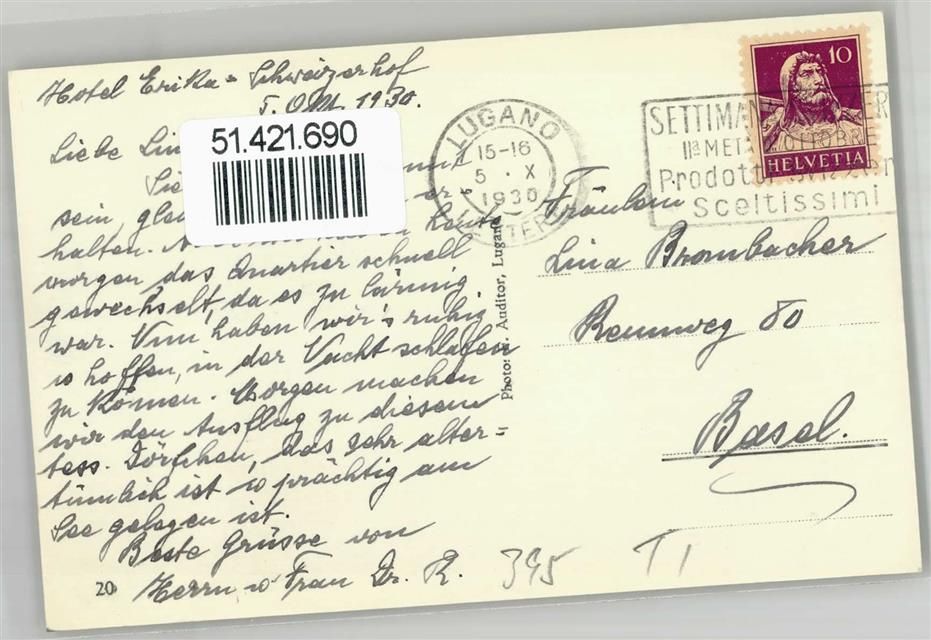 Hotel Erika = Schweizerhof
5. Okt. 1930.
51.421.690
Liebe
sein,
halten.
morgen das Quartier schnell
gewechselt, da es zu lärmig
war. Nun haben wir's ruhig
u hoffen, in der Nacht schlafen
zu können. Morgen machen
wir den Ausflug zu diesem
tess. Dörfchen, das sehr alter=
tümlich ist u prächtig am
See gelegen ist.
Beste Grüsse von
Herrn u Frau Dr. R.
20
Auditor, Lugano
LUGANO
15-16
5 · X
1930
10
HELVETIA
SETTIMANA
IIª META OTTOBRE
Prodotti
Sceltissimi
Fräulein
Lina Brombacher
Rennweg 80
Basel.
395 T1